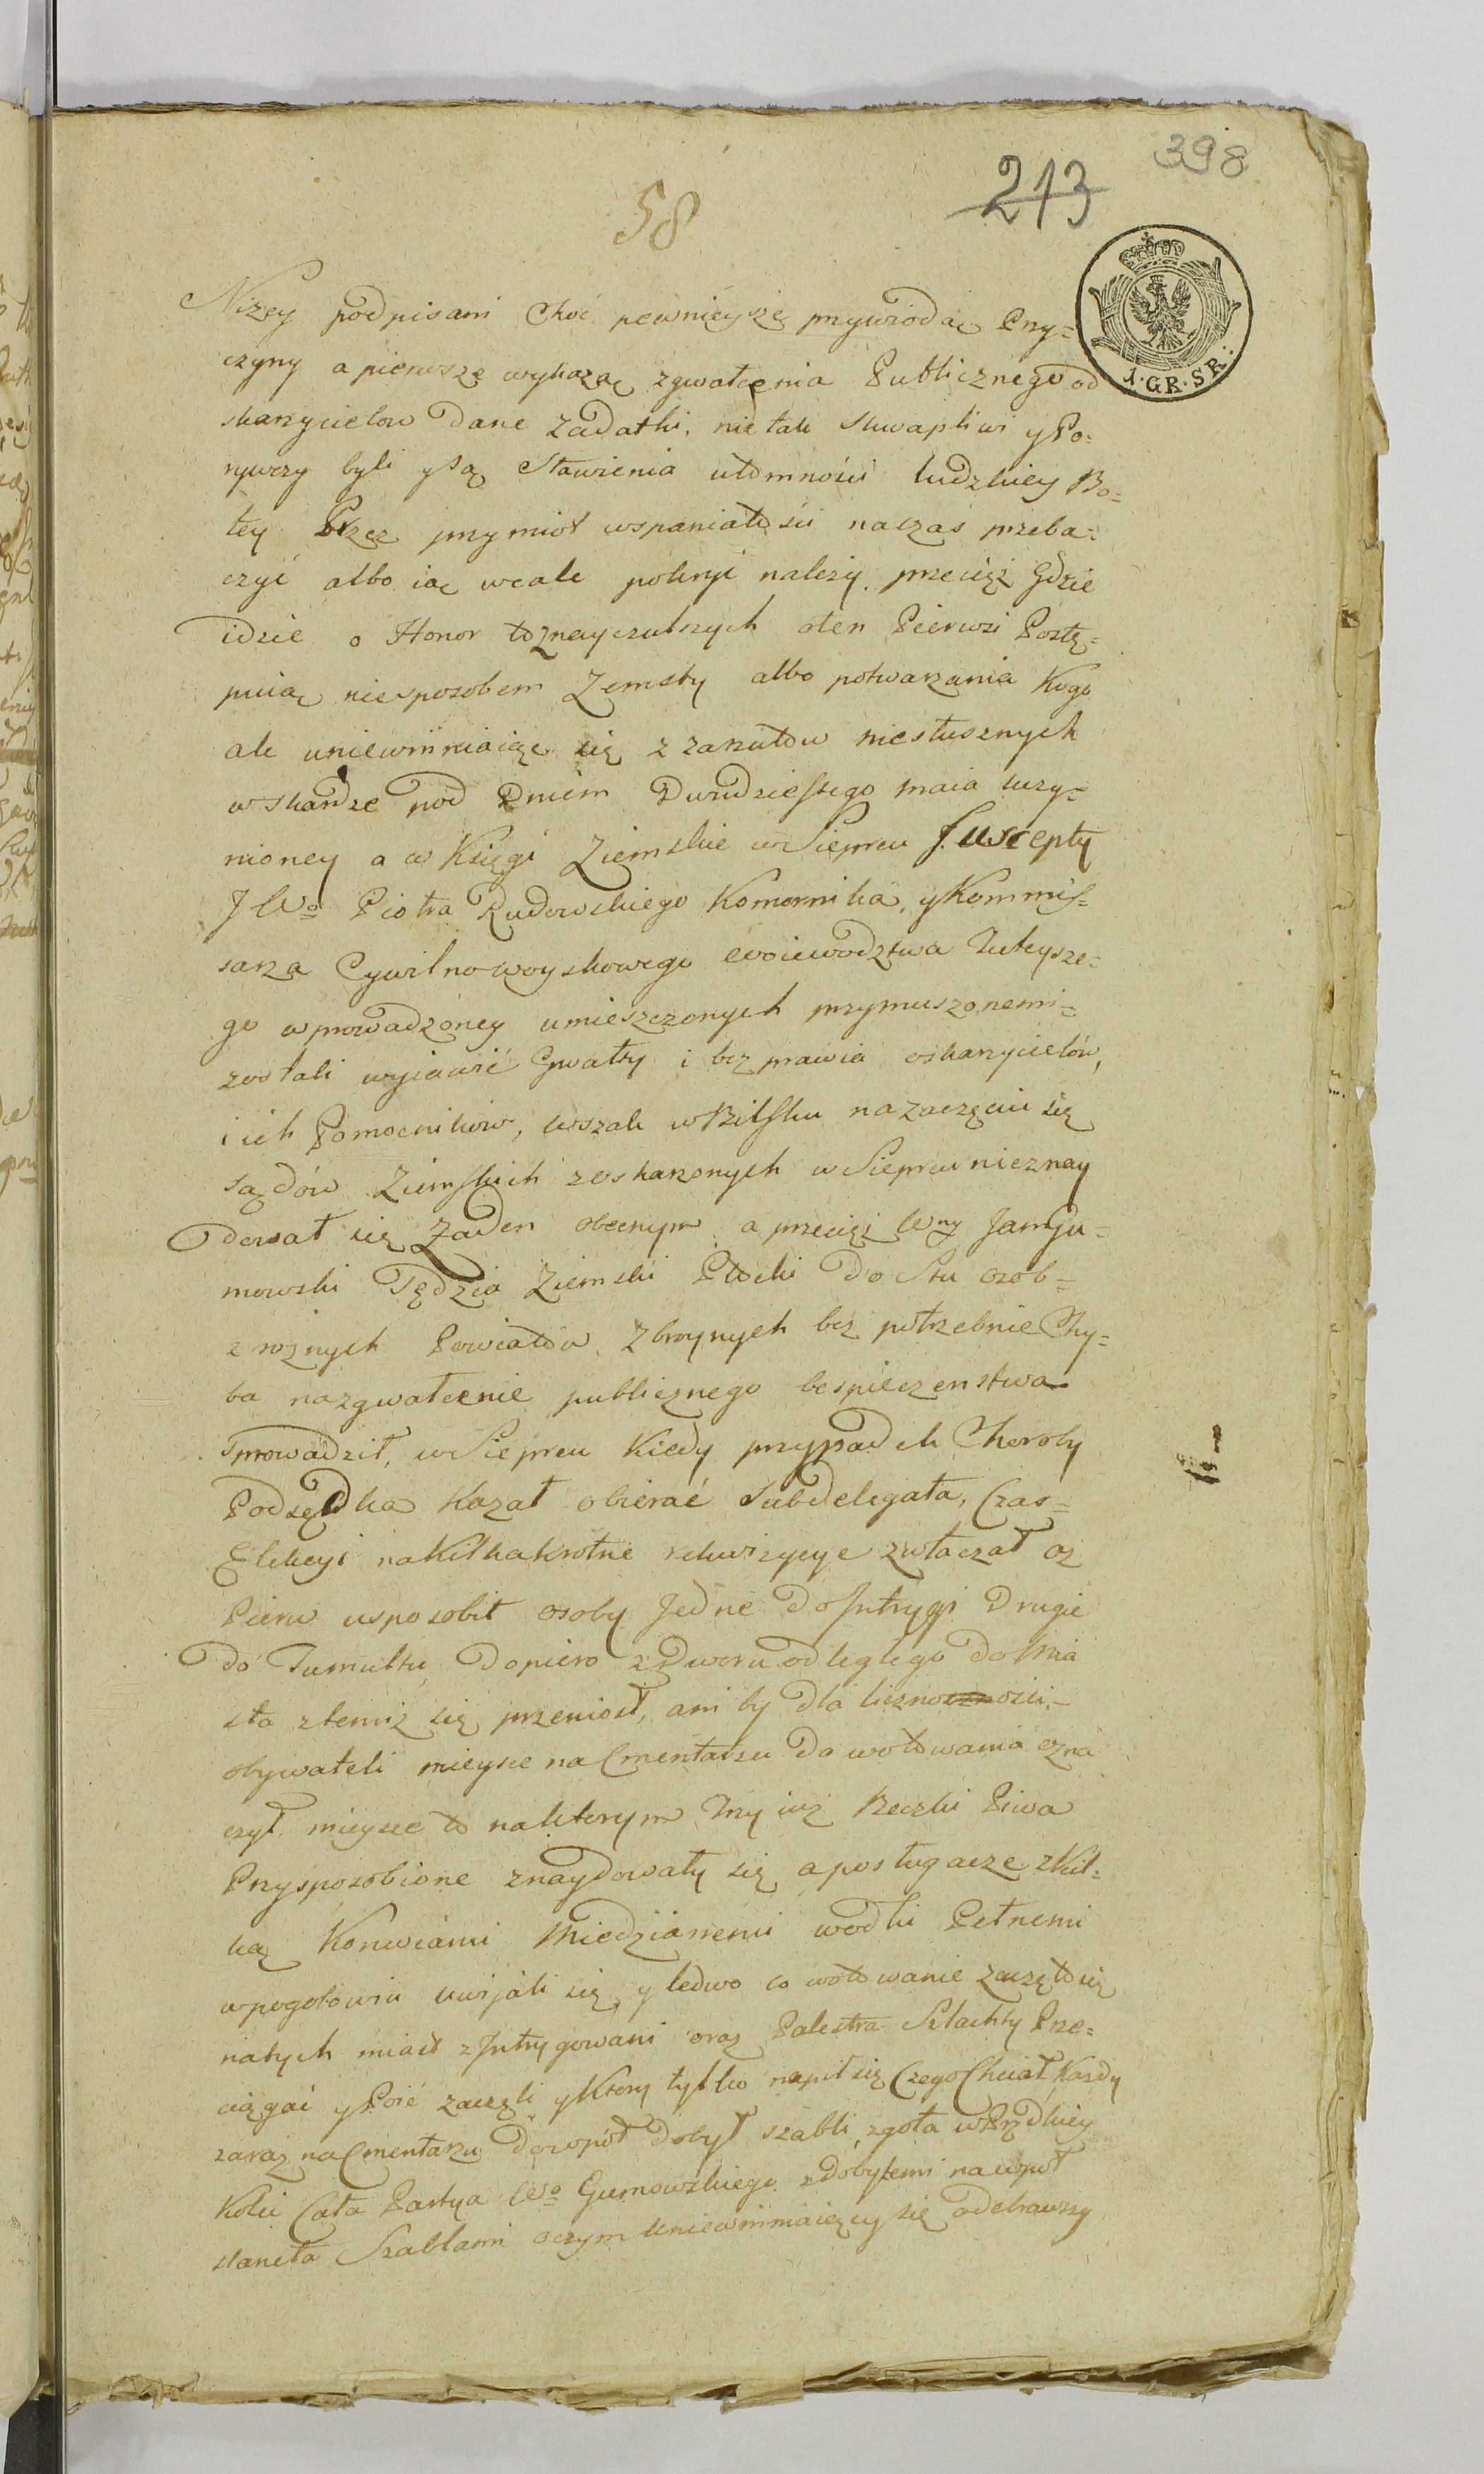 398
213
58
1. GR. SR:
Niżey podpisani choć pewnieysze przywiodą Przy=
czyny a pierwsze wykażą zgwałcenia Publicznego od
skarzycielow dane zadatki, nie tak skwapliwi y Po=
rywczy byli y są Stawienia ułomności ludzkiey
tey Przez przymiot wspaniałości naczas przeba=
czyć albo ią wcale pokryć należy. przecięż Gdzie
idzie o Honor to znayczulszych oten Pierwsi Postę=
puią niesposobem Zemsty albo potwarzania Kogo
ale uniewinniaiąc się z zarzutow niesłusznych
w skardze pod Dniem Dwudziestego maia uczy=
nioney a w Księgi Ziemskie w Sieprcu Suscepty
J Wo Piotra Rudowskiego Komornika, y Kommis=
sarza Cywilno woyskowego woiewodztwa Tuteysze=
go wprowadzoney umieszczonych przymuszonemi=
zostali wyiawić Gwałty i bezprawia oskarzycielów,
i ich Pomocnikow, wszak w Bilsku nazaczęciu się
sądów Ziemskich zoskarzonych w Sieprcu nieznay
dował się żaden obecnym a przecięż Wny Jan Gu=
mowski Sędzia Ziemski Płocki do Stu osob=
z rożnych Powiatow Zbroynych bez potrzebnie Chy=
ba nazgwałcenie publicznego bespieczenstwa
sprowadził, w Sieprcu Kiedy przypadek Choroby
Podsędka Kazał obierać Subdelegata, Czas=
Elekcyi na Kilkakrotne rekwizycye zwłaczał aż
Pierw usposobił osoby Jedne do Jntrygi Drugie
do Tumultu, Dopiero z Dworu odległego do Mia
sta z temiż się przeniosł, ani by dla licznosznosci=
obywateli mieysce na Cmentarzu do wotowania ozna
czył, mieysce to na ktorym Trzy iuż Beczki Piwa
Przysposobione znaydowały się a posługacze z Kil=
ką Konwiami Miedzianemi wodki Pełnemi
w pogotowiu uwijali się, y ledwo co wotowanie zaczęto się
natych miast zJntrygowani oraz Palestra Szlachty Prze=
ciągać y Poić zaczęli y Ktory tylko napił się Czego Chciał, Każdy
zaraz na Cmentarzu dowpół dobył szabli, zgoła w Prędkiey
Kolei Cała Partya Wo Gumowskiego z dobytemi na wpół
stanęła Szablami oczym Uniewinniaiący się odebrawszy